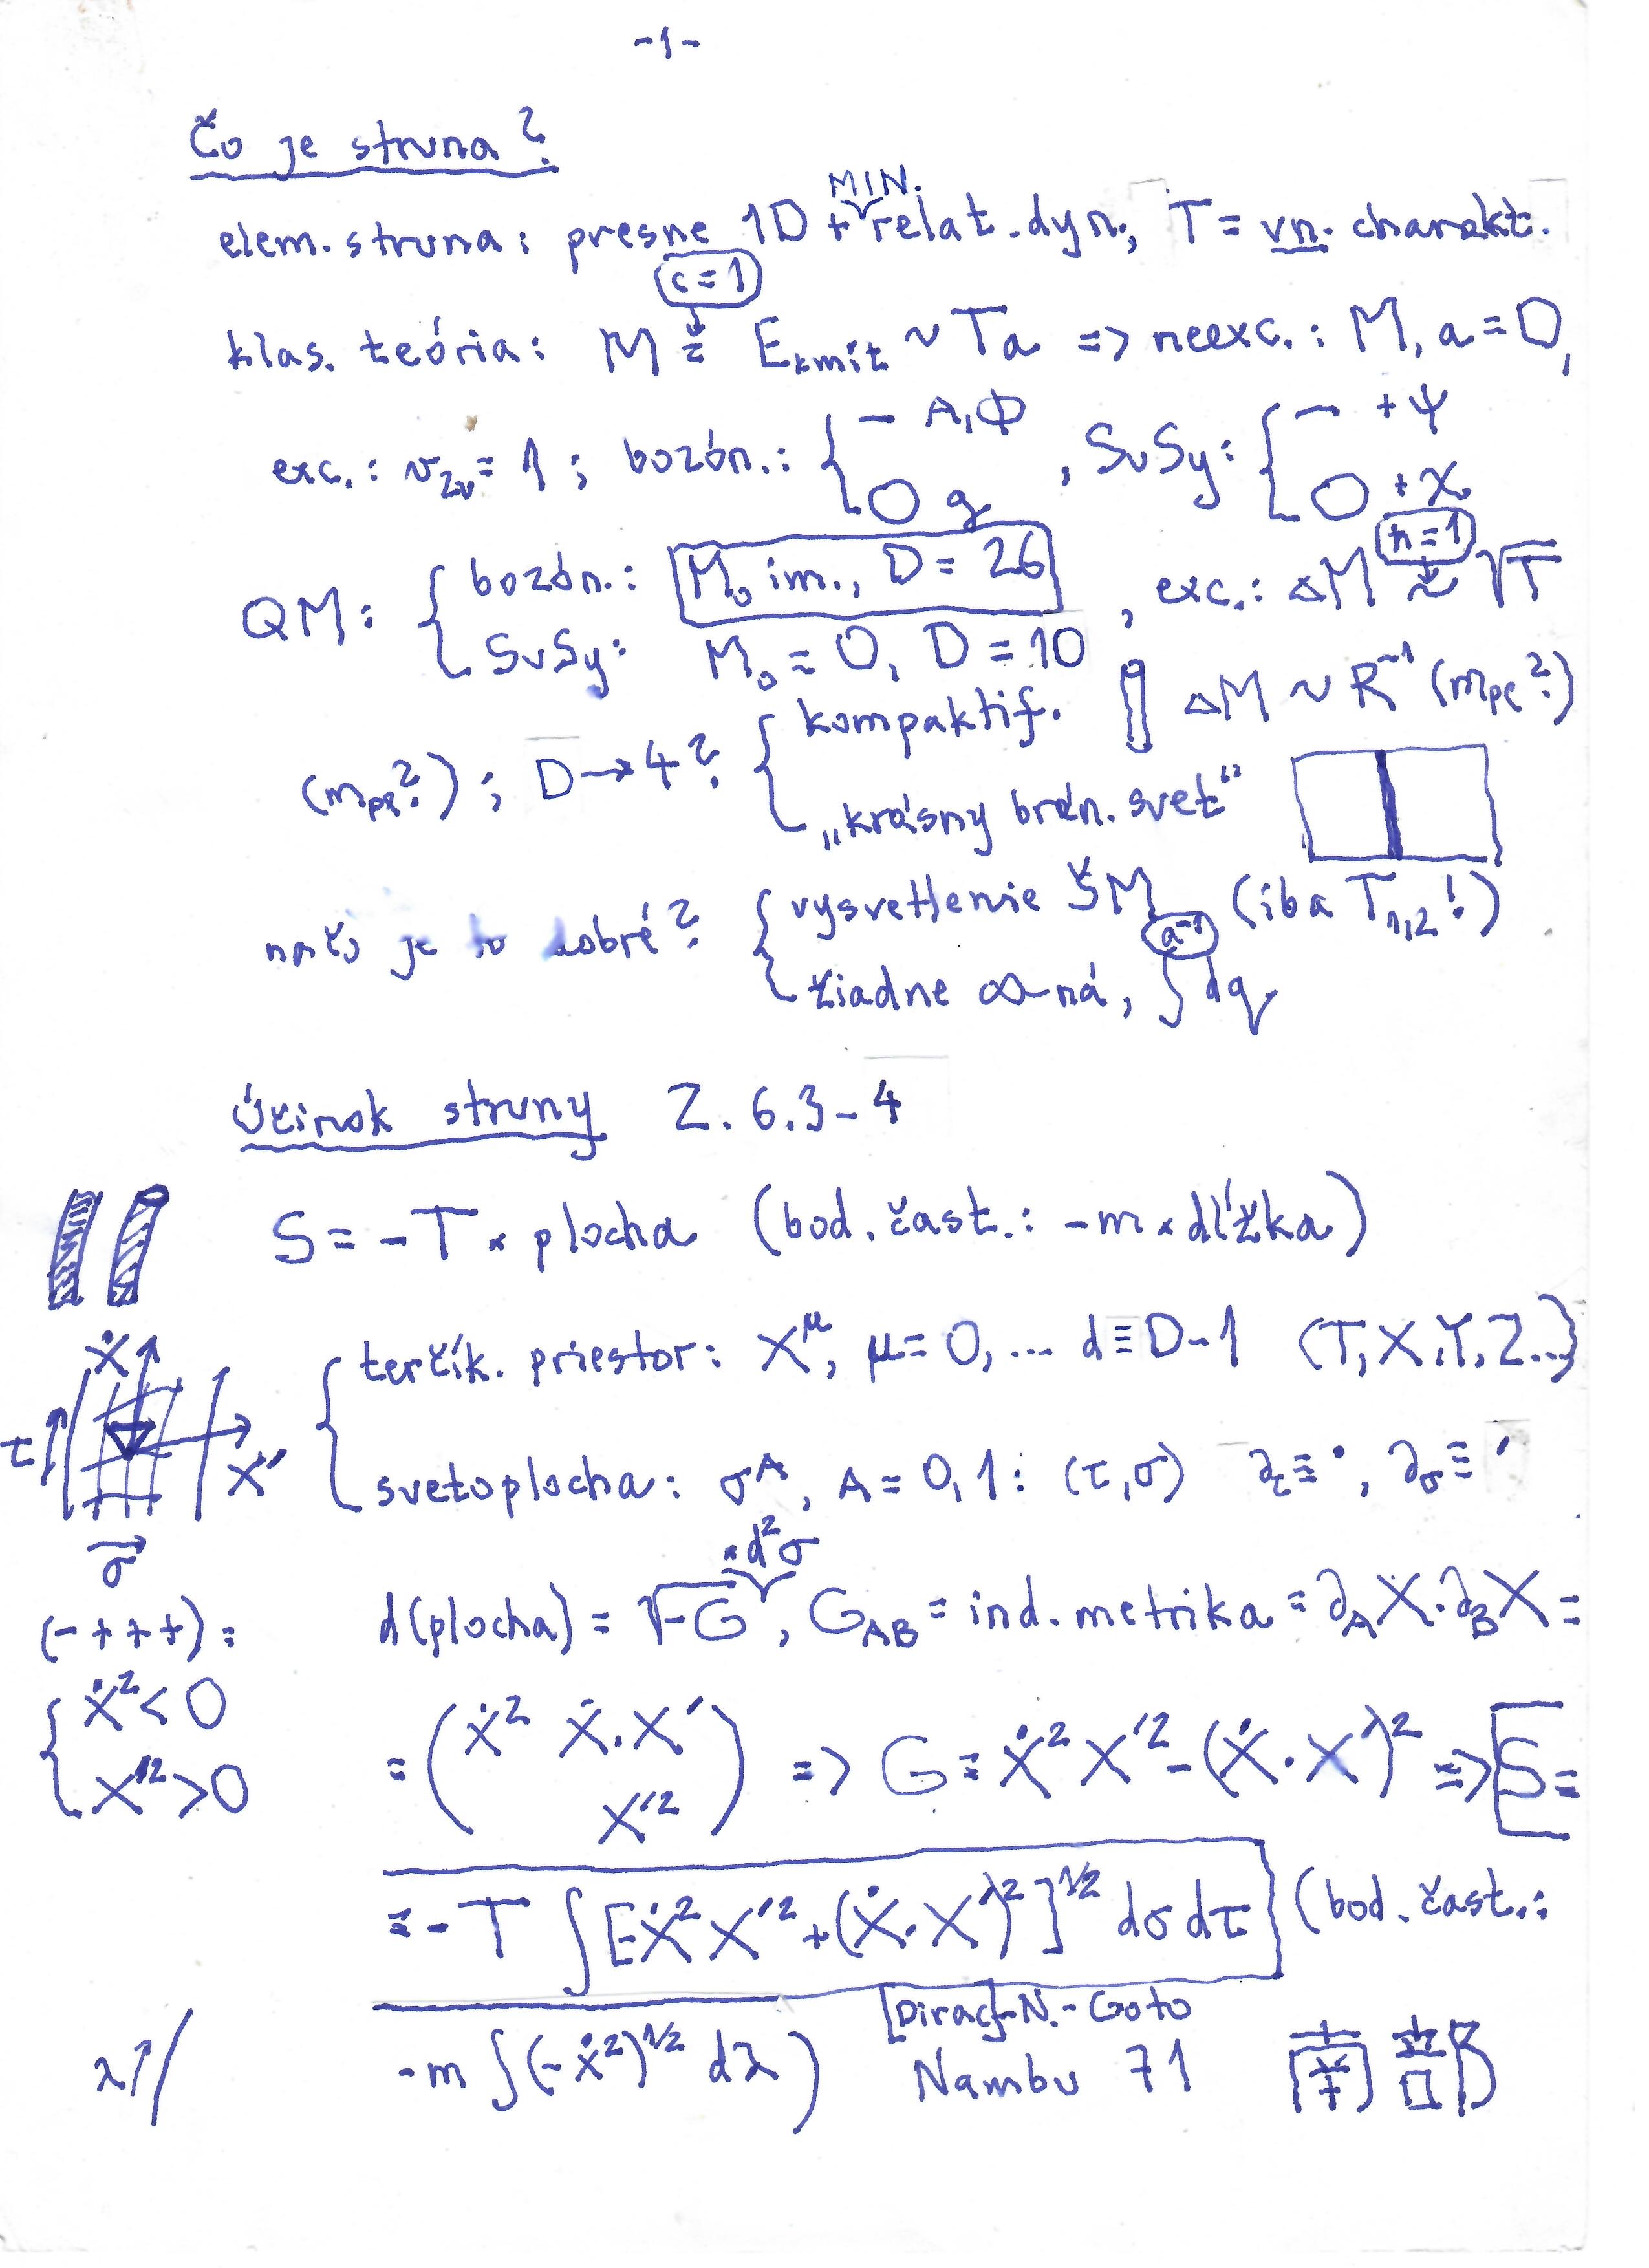 -1-
Čo je struna?
elem. struna: presne 1D + MIN. relat. dyn., T = vn. charakt.
klas. teória: M = (c=1) E_kmit ~ Ta => neexc.: M, a = 0,
exc.: v_zv = 1; bozón.: { — A, Φ , SuSy: { — + ψ
O g O + χ
QM: { bozón.: M₀ im., D = 26 , exc.: ΔM ~ (ħ=1) √T
SuSy: M₀ = 0, D = 10
(m_pl?); D → 4? { kompaktif. ΔM ~ R⁻¹ (m_pl?)
„krásny brán. svet“
načo je to dobré? { vysvetlenie ŠM (iba T₁,₂!)
žiadne ∞-ná, ∫^(a⁻¹) dq
Účinok struny Z. 6.3-4
S = -T × plocha (bod. čast.: -m × dĺžka)
{ terčík. priestor: X^μ, μ = 0, ... d ≡ D-1 (T, X, Y, Z...)
svetoplocha: σ^A, A = 0, 1: (τ, σ) ∂_τ ≡ ˙, ∂_σ ≡ ′
Ẋ
τ
X′
σ
d(plocha) = √-G × d²σ, G_AB = ind. metrika = ∂_A X · ∂_B X =
(- + + +):
{ Ẋ² < 0
X′² > 0
= ( Ẋ² Ẋ·X′
X′² ) => G = Ẋ² X′² - (Ẋ·X′)² => S =
= -T ∫ [-Ẋ² X′² + (Ẋ·X′)²]^1/2 dσ dτ (bod. čast.:
λ
-m ∫ (-ẋ²)^1/2 dλ) [Dirac]-N.-Goto
Nambu 71 南部